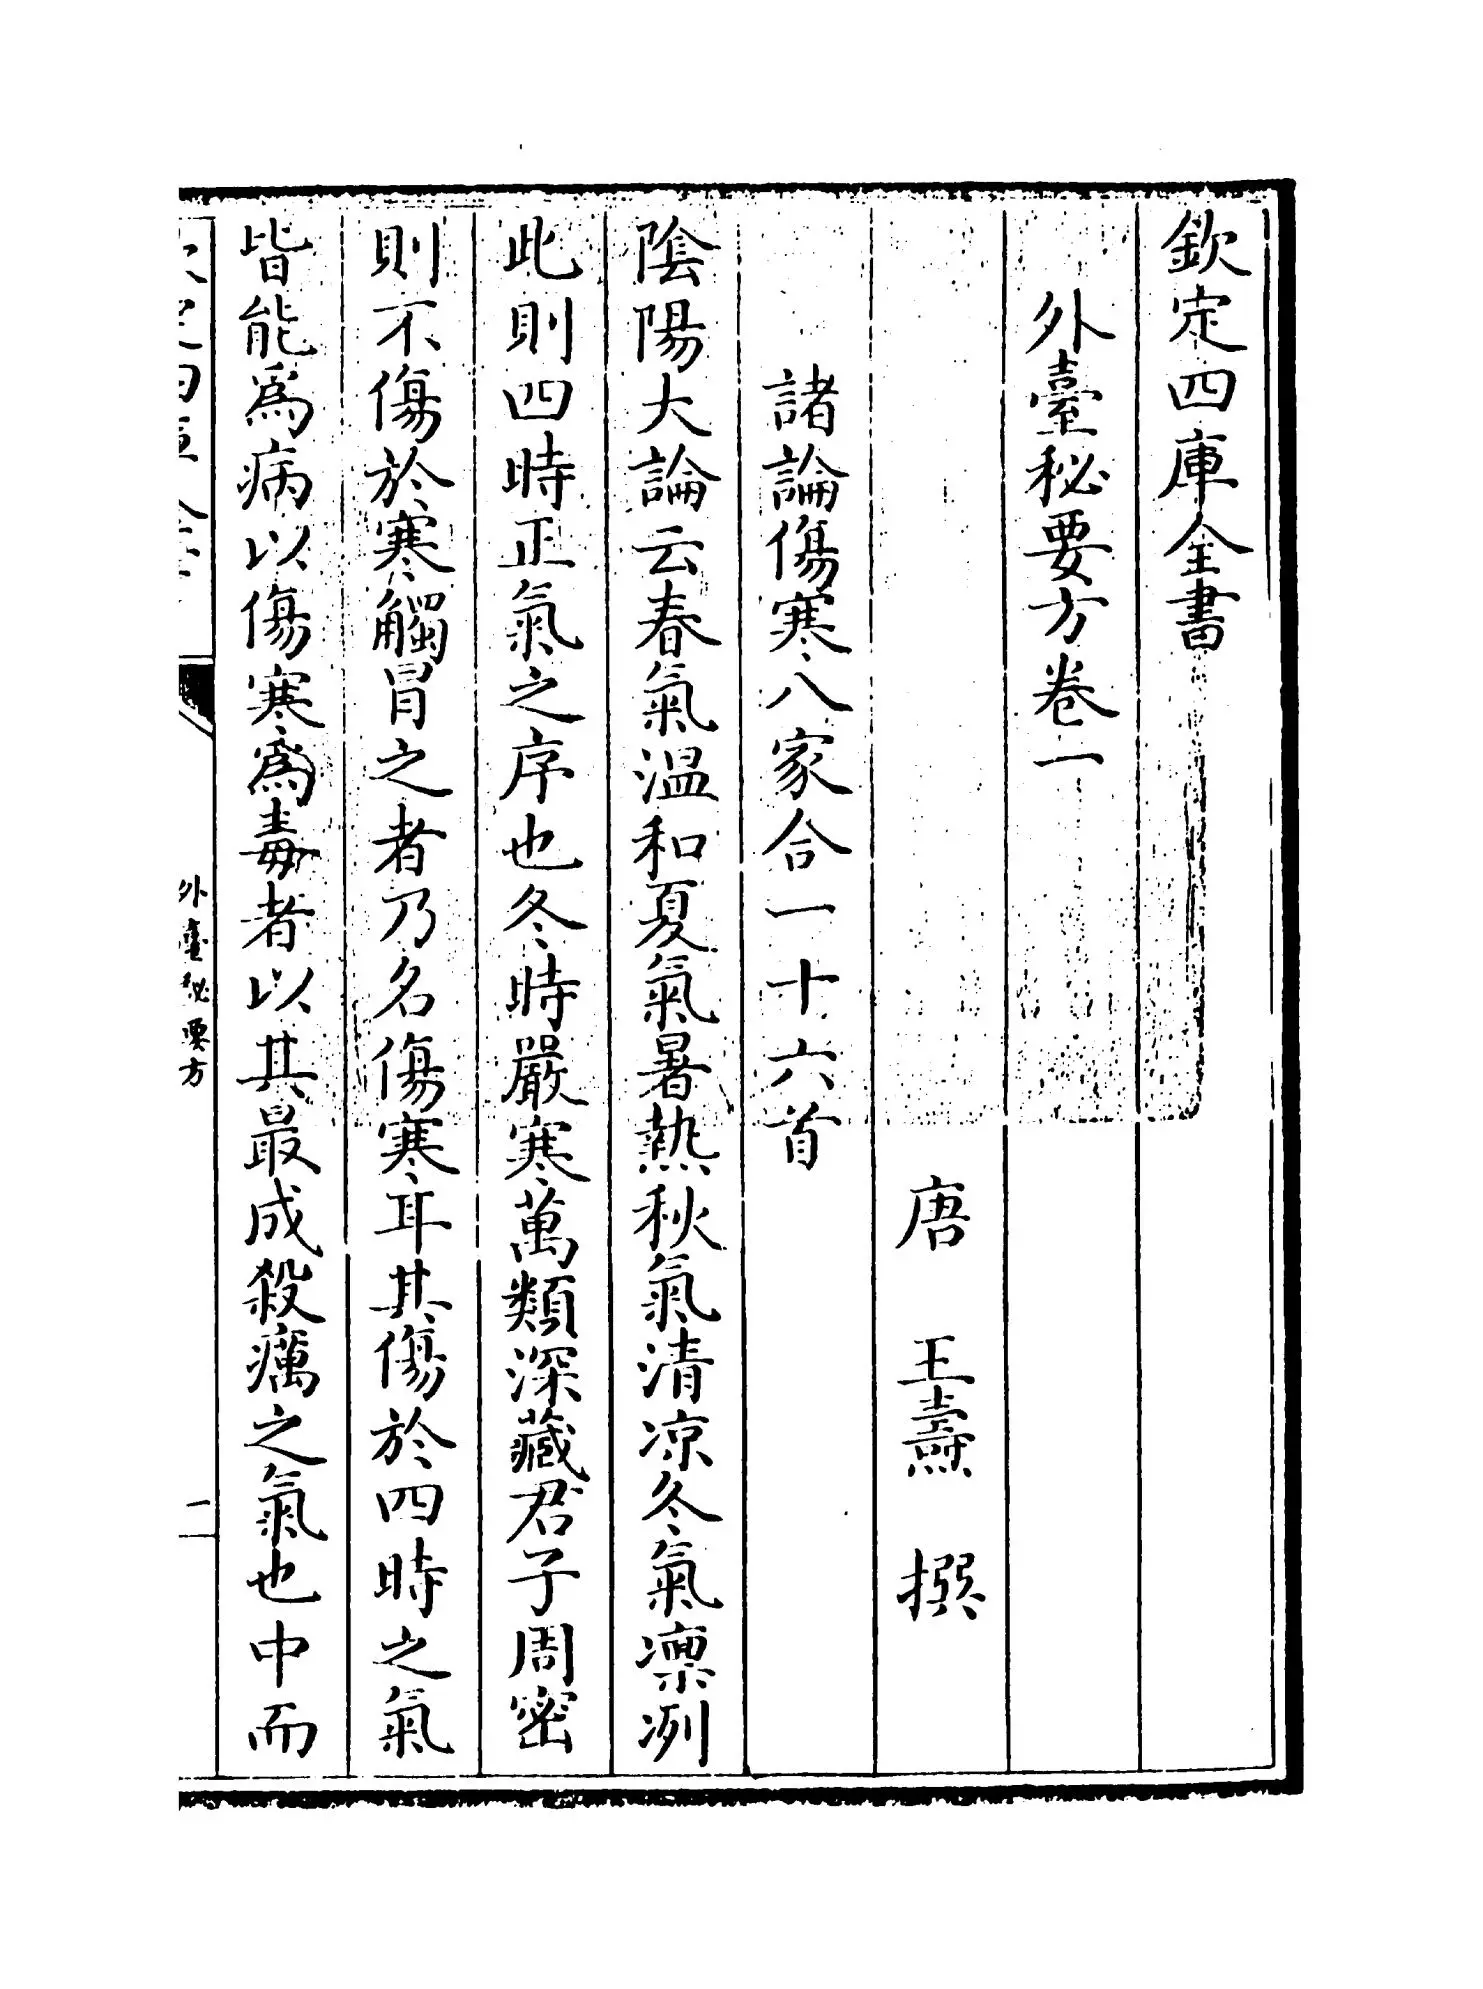 欽定四庫全書
外臺秘要方卷一
唐 王燾 撰
諸論傷寒八家合一十六首
陰陽大論云春氣温和夏氣暑熱秋氣清凉冬氣凛冽
此則四時正氣之序也冬時嚴寒萬類深藏君子周密
則不傷於寒觸冒之者乃名傷寒耳其傷於四時之氣
皆能為病以傷寒為毒者以其最成殺癘之氣也中而
外臺秘要方